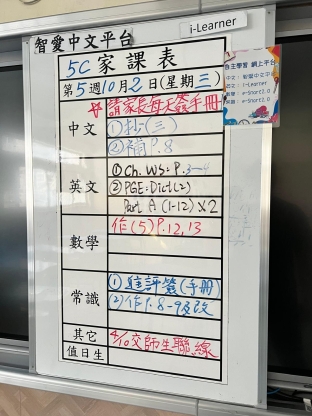 i-Learner
智愛中文平台
5C 家課表
第5週10月2日(星期三)
請家長每天簽手冊
中文
①抄(三)
②補P.8
英文
①Ch. WS: P.3-4
②PGE: Dict(2)
Part A (1-12) X2
數學
作(5)P.12,13
常識
(2)作P.8-9及改
其它
4/10交師生聯線
值日生
自主學習 網上平台
中文：智愛中文平台
英文：i-Learner